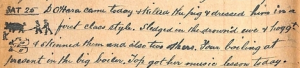 SAT 26 D O'Hara came today & killed the pig & dressed him in a
first class style. Sledged in the drowned ewe & hogg't
& skinned them and also two others. Four boiling at
present in the big boiler. Jop got her music lesson today.